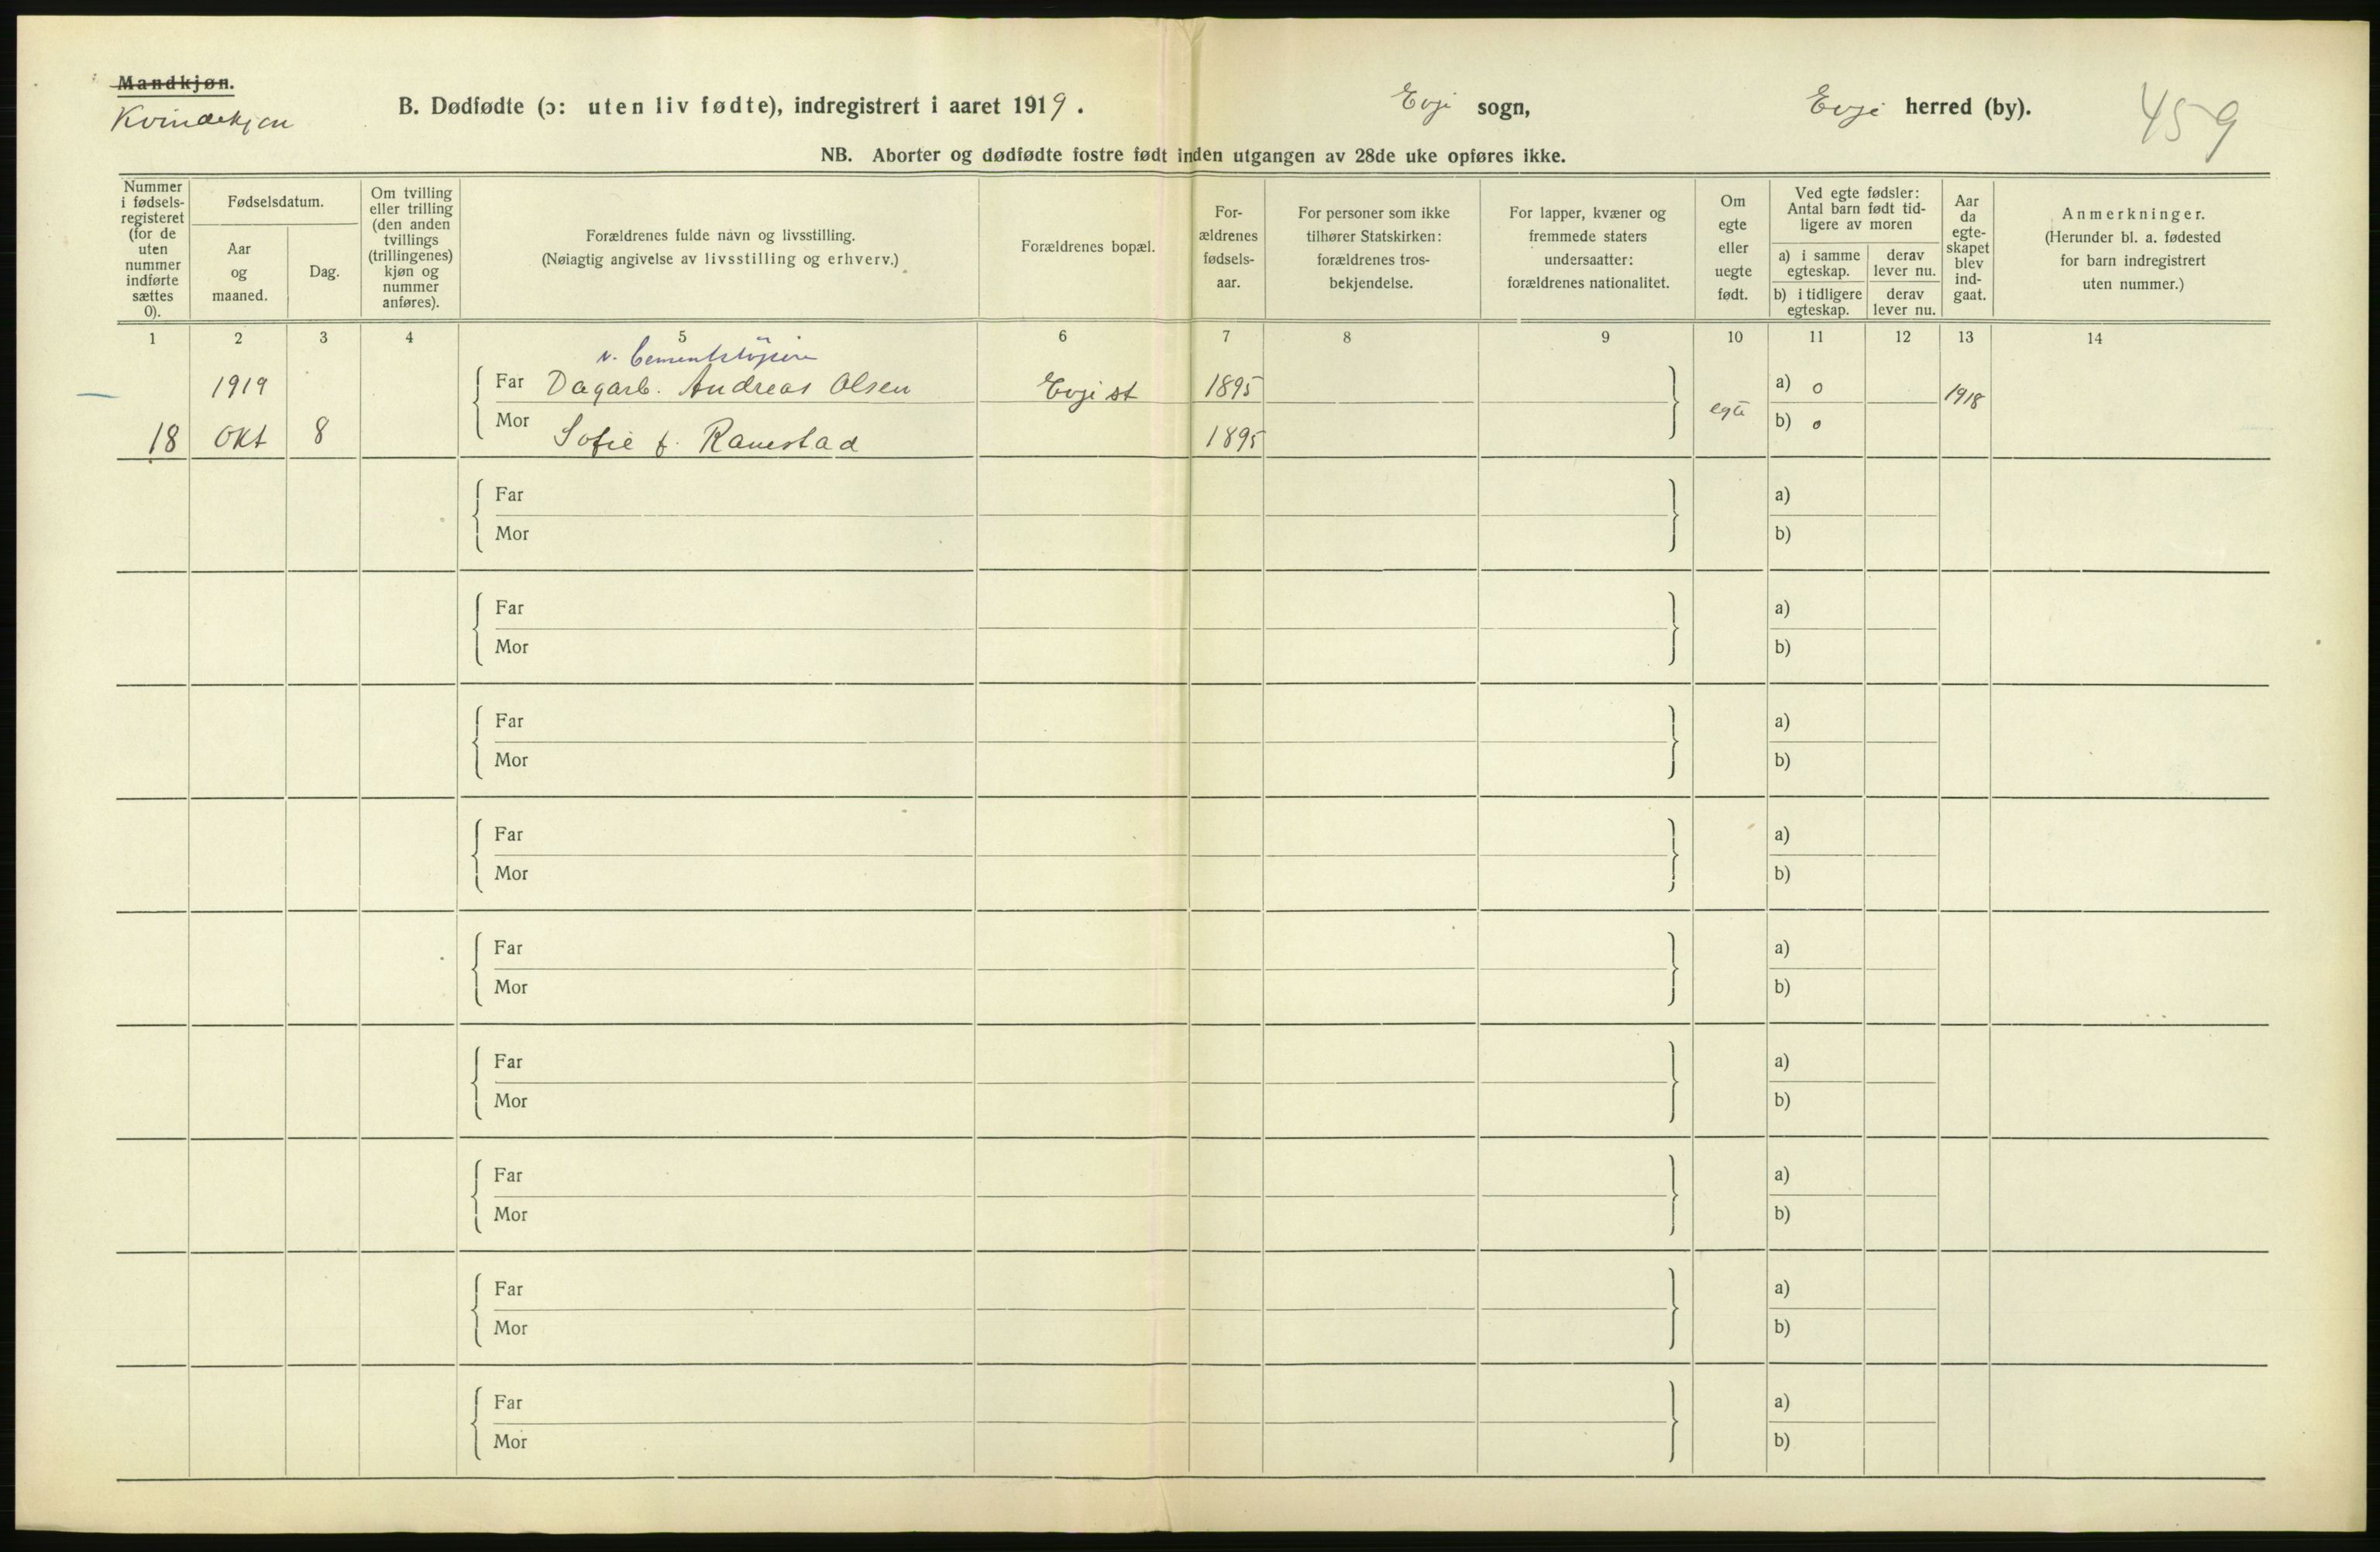 Mandkjøn.
Kvindekjøn
B. Dødfødte (ɔ: uten liv fødte), indregistrert i aaret 1919.
Evje sogn,
Evje herred (by).
459
NB. Aborter og dødfødte fostre født inden utgangen av 28de uke opføres ikke.
Nummer i fødsels-registeret (for de uten nummer indførte sættes 0).
Fødselsdatum.
Aar og maaned.
Dag.
Om tvilling eller trilling (den anden tvillings (trillingenes) kjøn og nummer anføres).
Forældrenes fulde navn og livsstilling.
(Nøiagtig angivelse av livsstilling og erhverv.)
Forældrenes bopæl.
For-ældrenes fødsels-aar.
For personer som ikke tilhører Statskirken: forældrenes tros-bekjendelse.
For lapper, kvæner og fremmede staters undersaatter: forældrenes nationalitet.
Om egte eller uegte født.
Ved egte fødsler: Antal barn født tid-ligere av moren
a) i samme egteskap.
derav lever nu.
b) i tidligere egteskap.
derav lever nu.
Aar da egte-skapet blev ind-gaat.
Anmerkninger.
(Herunder bl. a. fødested for barn indregistrert uten nummer.)
1 2 3 4 5 6 7 8 9 10 11 12 13 14
v. Cementstøperi
1919 Far Dagarb. Andreas Olsen Evje st 1895 a) 0
egte 1918
18 Okt 8 Mor Sofie f. Ranestad 1895 b) 0
Far a)
Mor b)
Far a)
Mor b)
Far a)
Mor b)
Far a)
Mor b)
Far a)
Mor b)
Far a)
Mor b)
Far a)
Mor b)
Far a)
Mor b)
Far a)
Mor b)